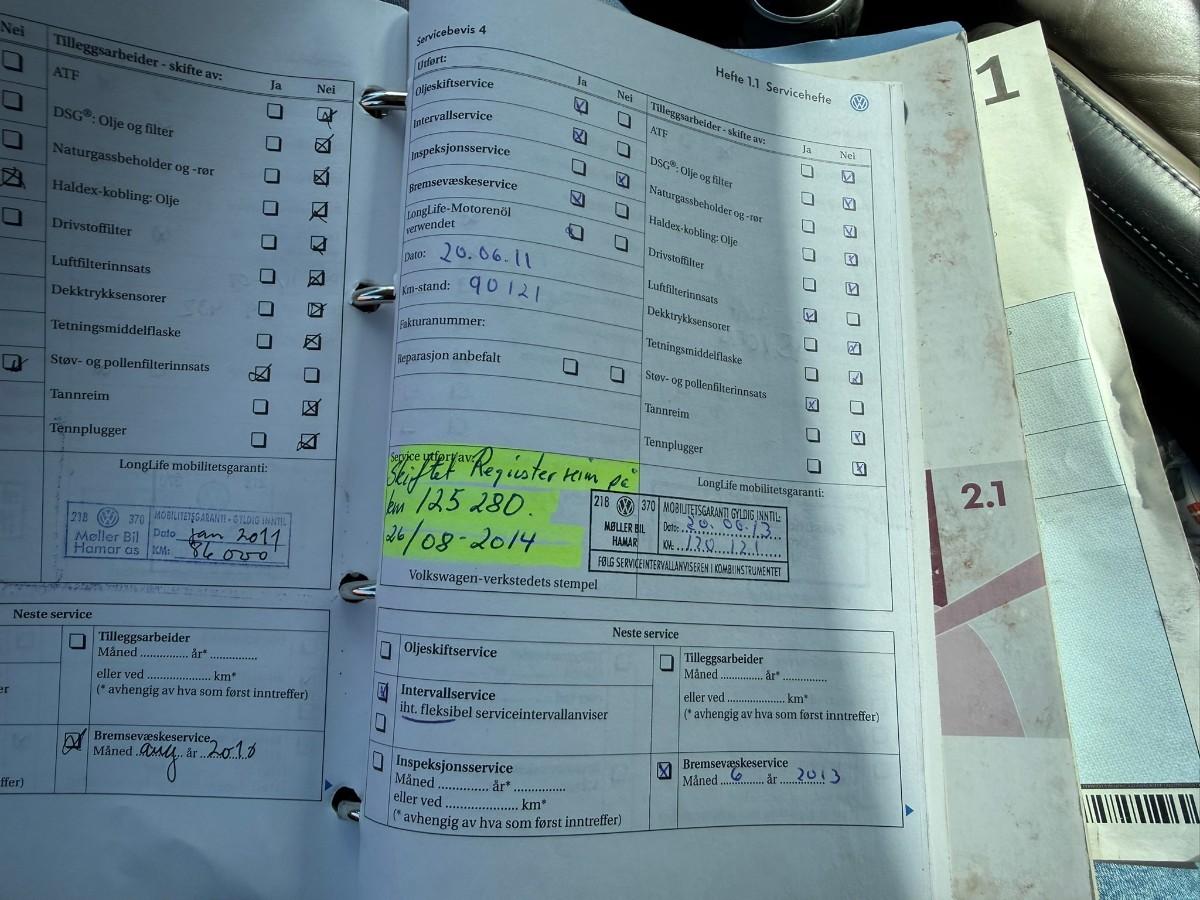 Nei
Tilleggsarbeider - skifte av:
Ja Nei
ATF
DSG®: Olje og filter
Naturgassbeholder og -rør
Haldex-kobling: Olje
Drivstoffilter
Luftfilterinnsats
Dekktrykksensorer
Tetningsmiddelflaske
Støv- og pollenfilterinnsats
Tannreim
Tennplugger
LongLife mobilitetsgaranti:
21B 370
Møller Bil
Hamar as
MOBILITETSGARANTI - GYLDIG INNTIL
Dato jan 2011
KM: 86 000
Neste service
Tilleggsarbeider
Måned .............. år* ..............
eller ved .................... km*
(* avhengig av hva som først inntreffer)
Bremsevæskeservice
Måned aug. år 2010
er
ffer)
Servicebevis 4
Hefte 1.1 Servicehefte
Utført:
Ja Nei
Oljeskiftservice
Intervallservice
Inspeksjonsservice
Bremsevæskeservice
LongLife-Motorenöl
verwendet
Dato: 20.06.11
Km-stand: 90121
Fakturanummer:
Reparasjon anbefalt
Tilleggsarbeider - skifte av:
Ja Nei
ATF
DSG®: Olje og filter
Naturgassbeholder og -rør
Haldex-kobling: Olje
Drivstoffilter
Luftfilterinnsats
Dekktrykksensorer
Tetningsmiddelflaske
Støv- og pollenfilterinnsats
Tannreim
Tennplugger
Service utført av:
Skiftet Registerreim på
km 125 280.
26/08-2014
LongLife mobilitetsgaranti:
21B 370
MØLLER BIL
HAMAR
MOBILITETSGARANTI GYLDIG INNTIL:
Dato: 20.06.13
KM: 120 121
FØLG SERVICEINTERVALLANVISEREN I KOMBIINSTRUMENTET
Volkswagen-verkstedets stempel
Neste service
Oljeskiftservice
Intervallservice
iht. fleksibel serviceintervallanviser
Inspeksjonsservice
Måned .............. år* ..............
eller ved .................... km*
(* avhengig av hva som først inntreffer)
Tilleggsarbeider
Måned .............. år* ..............
eller ved .................... km*
(* avhengig av hva som først inntreffer)
Bremsevæskeservice
Måned 6 år 2013
1
2.1